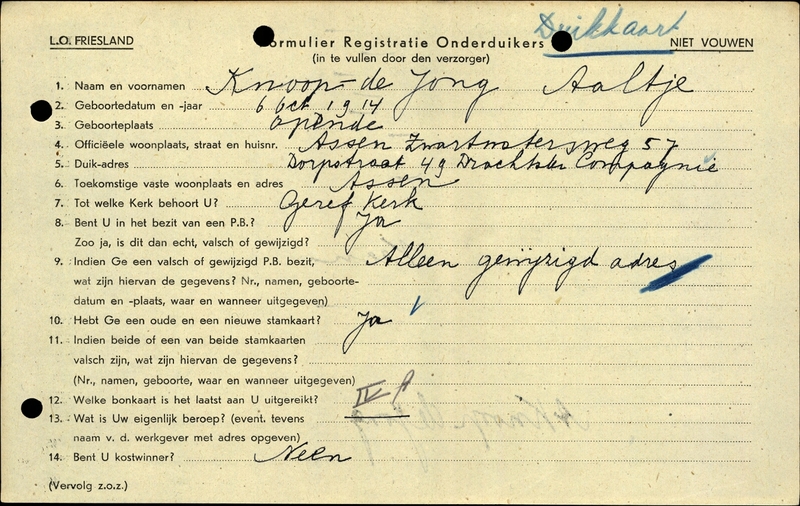 Duikkaart
L.O. FRIESLAND
Formulier Registratie Onderduikers
NIET VOUWEN
(in te vullen door den verzorger)
1. Naam en voornamen Knoop-de Jong Aaltje
2. Geboortedatum en -jaar 6 Oct 1914
3. Geboorteplaats Opende
4. Officiëele woonplaats, straat en huisnr. Assen Zwartwatersweg 57
5. Duik-adres Dorpstraat 49 Drachtster Compagnie
6. Toekomstige vaste woonplaats en adres Assen
7. Tot welke Kerk behoort U? Geref Kerk
8. Bent U in het bezit van een P.B.? Ja
Zoo ja, is dit dan echt, valsch of gewijzigd?
9. Indien Ge een valsch of gewijzigd P.B. bezit, Alleen gewijzigd adres
wat zijn hiervan de gegevens? Nr., namen, geboorte-
datum en -plaats, waar en wanneer uitgegeven)
10. Hebt Ge een oude en een nieuwe stamkaart? Ja
11. Indien beide of een van beide stamkaarten
valsch zijn, wat zijn hiervan de gegevens?
(Nr., namen, geboorte, waar en wanneer uitgegeven)
12. Welke bonkaart is het laatst aan U uitgereikt? IV
13. Wat is Uw eigenlijk beroep? (event. tevens
naam v. d. werkgever met adres opgeven)
14. Bent U kostwinner? Neen
(Vervolg z.o.z.)